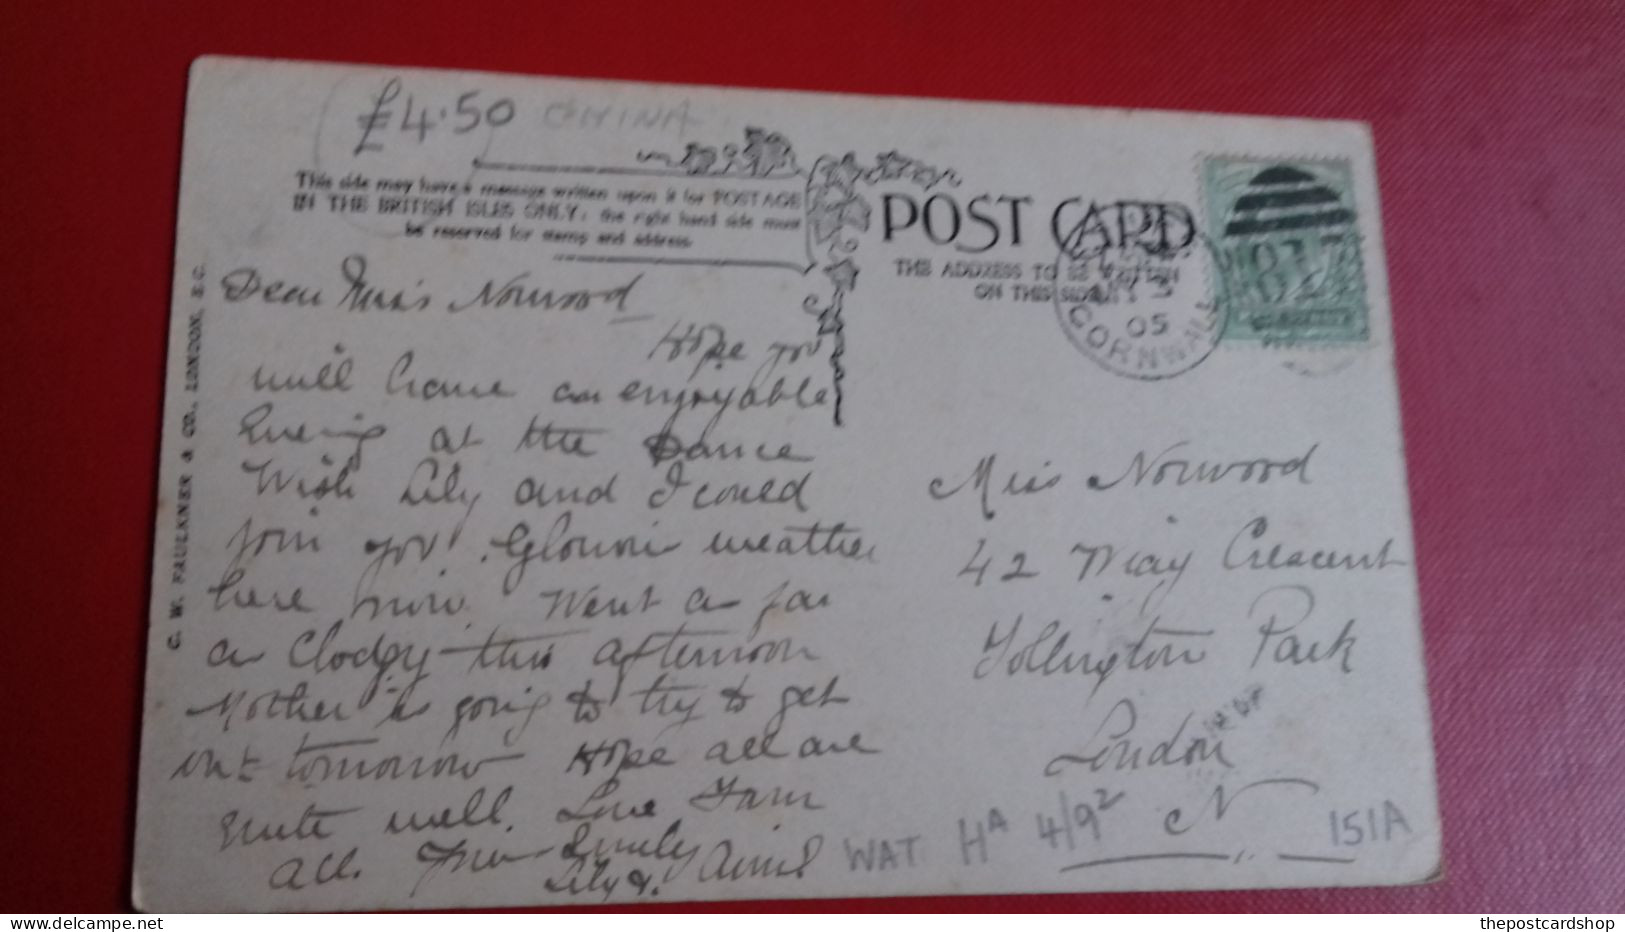 £4.50 CHINA
This side may have a message written upon it for POSTAGE
IN THE BRITISH ISLES ONLY: the right hand side must
be reserved for stamp and address.
POST CARD
THE ADDRESS TO BE WRITTEN
ON THIS SIDE
CORNWALL
05
C. W. FAULKNER & CO., LONDON, E.C.
Dear Miss Norwood
Hope you
will have an enjoyable
Evening at the Dance
Wish Lily and I could
join you. Glorious weather
here now. Went as far
as Clodgy this afternoon
Mother is going to try to get
out tomorrow Hope all are
quite well. Love from
all. From Emily
Lily &
Miss Norwood
42 Crescent
Tollington Park
London
N
WAT HA 4/92
151A
thepostcardshop